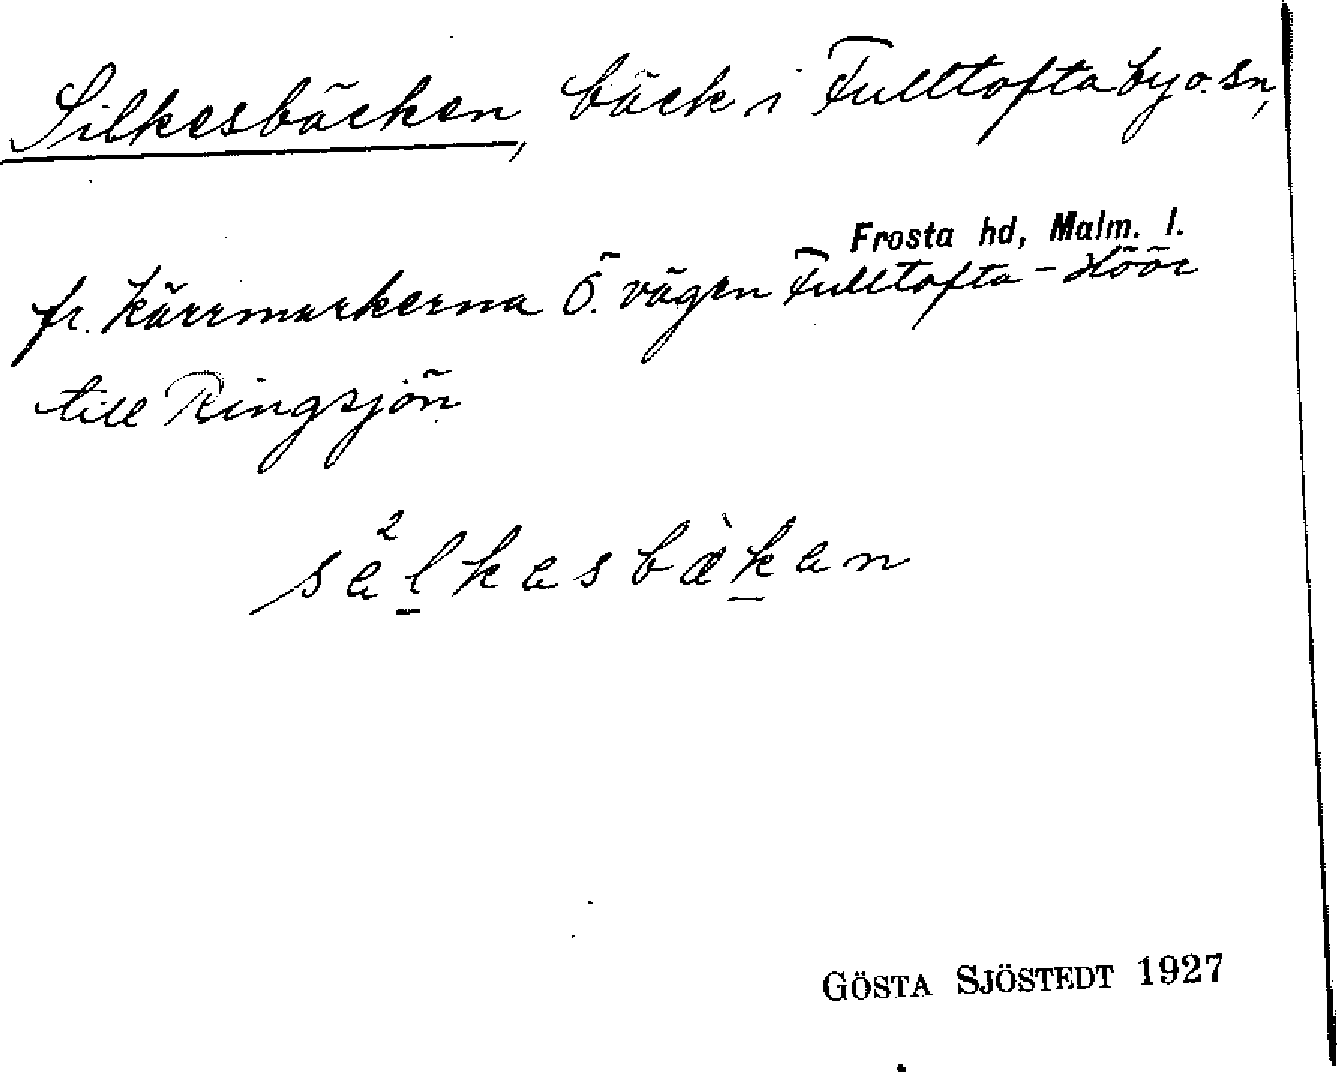 Silkesbäcken, bäck i Fulltofta by o. sn,
Frosta hd, Malm. l.
fr. kärrmarkerna Ö. vägen Fulltofta - Höör
till Ringsjön.
sel̲kasbæ̀k̲an
GÖSTA SJÖSTEDT 1927